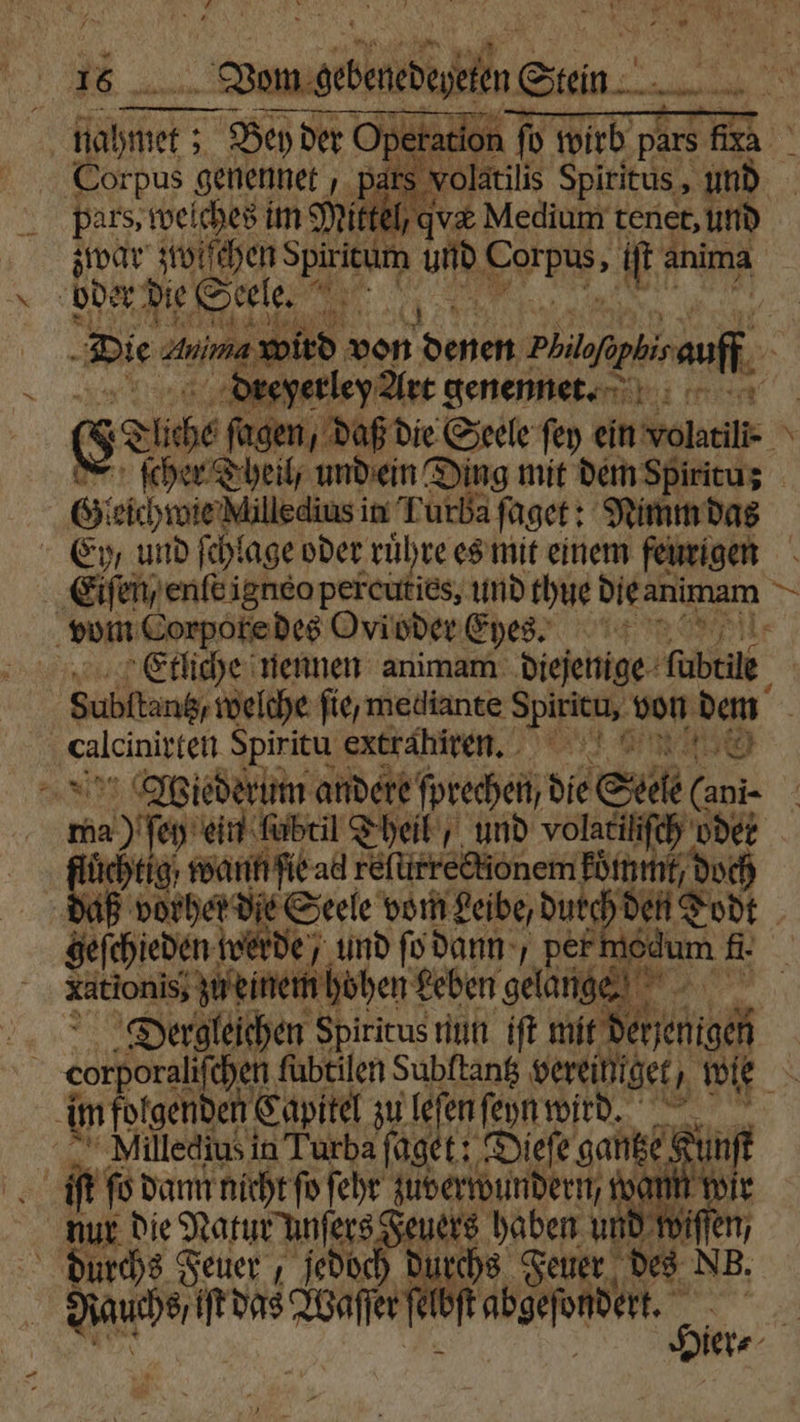 16 Vom gebenedeyeten Stein
nahmet; Bey der Operation so wirb pars fixa
Corpus genennet, pars volatilis Spiritus, und
pars, welches im Mittel, qvæ Medium tenet, und
zwar zwischen Spiritum und Corpus, ist anima
oder die Seele.
Die Anima wird von denen Philosophis auff
dreyerley Art genennet.
ETliche sagen, daß die Seele sey ein volatili-
scher Theil, und ein Ding mit dem Spiritu;
Gleichwie Milledius in Turba saget: Nimm das
Ey, und schlage oder rühre es mit einem feurigen
Eisen, ense igneo percuties, und thue die animam
vom Corpore des Ovi oder Eyes.
Etliche nennen animam diejenige subtile
Substantz, welche sie, mediante Spiritu, von dem
calcinirten Spiritu extrahiren.
Wiederum andere sprechen, die Seele (ani-
ma) sey ein subtil Theil, und volatilisch oder
flüchtig, wann sie ad resurrectionem kömmt, doch
daß vorher die Seele vom Leibe, durch den Todt
geschieden werde, und so dann, per modum fi-
xationis, zu einem hohen Leben gelange.
Dergleichen Spiritus nun ist mit derjenigen
corporalischen subtilen Substantz vereiniget, wie
im folgenden Capitel zu lesen seyn wird.
Milledius in Turba saget: Diese gantze Kunst
ist so dann nicht so sehr zuverwundern, wann wir
nur die Natur unsers Feuers haben und wissen,
durchs Feuer, jedoch durchs Feuer des NB.
Rauchs, ist das Wasser selbst abgesondert.
Hier-